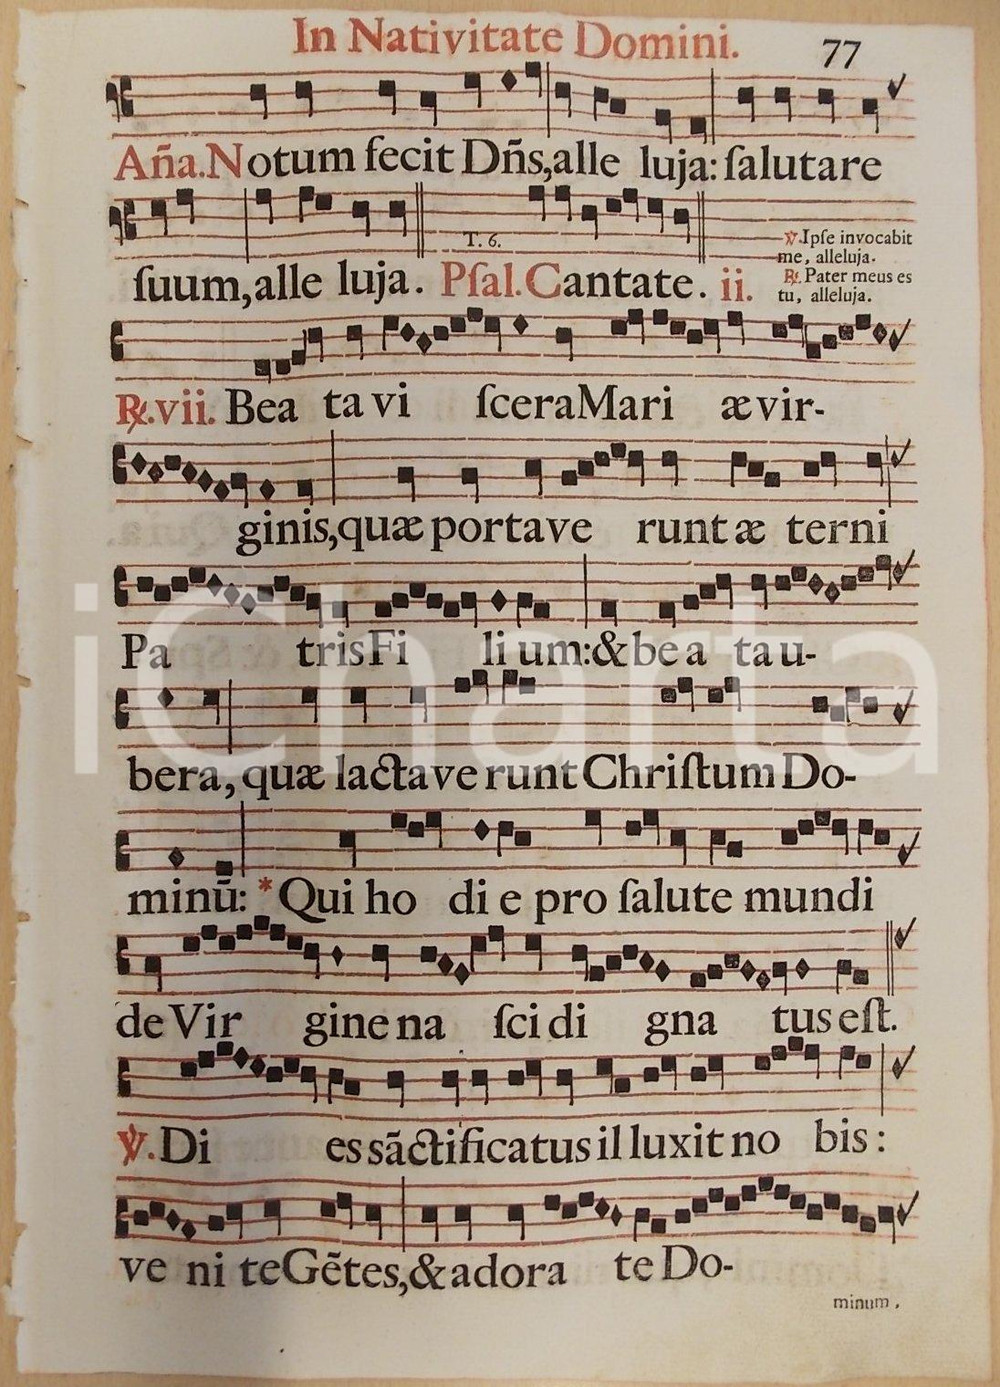 In Nativitate Domini. 77
Aña. Notum fecit Dñs, alle luja: ſalutare
T. 6.
ſuum, alle luja. Pſal. Cantate. ii.
℣. Ipſe invocabit
me, alleluja.
℟. Pater meus es
tu, alleluja.
℟. vii. Bea ta vi ſcera Mari æ vir-
ginis, quæ portave runt æ terni
Pa tris Fi li um: & be a ta u-
bera, quæ lactave runt Chriſtum Do-
minū: * Qui ho di e pro ſalute mundi
de Vir gine na ſci di gna tus eſt.
℣. Di es sāctificatus il luxit no bis:
ve ni te Gētes, & adora te Do-
minum.
iCharta